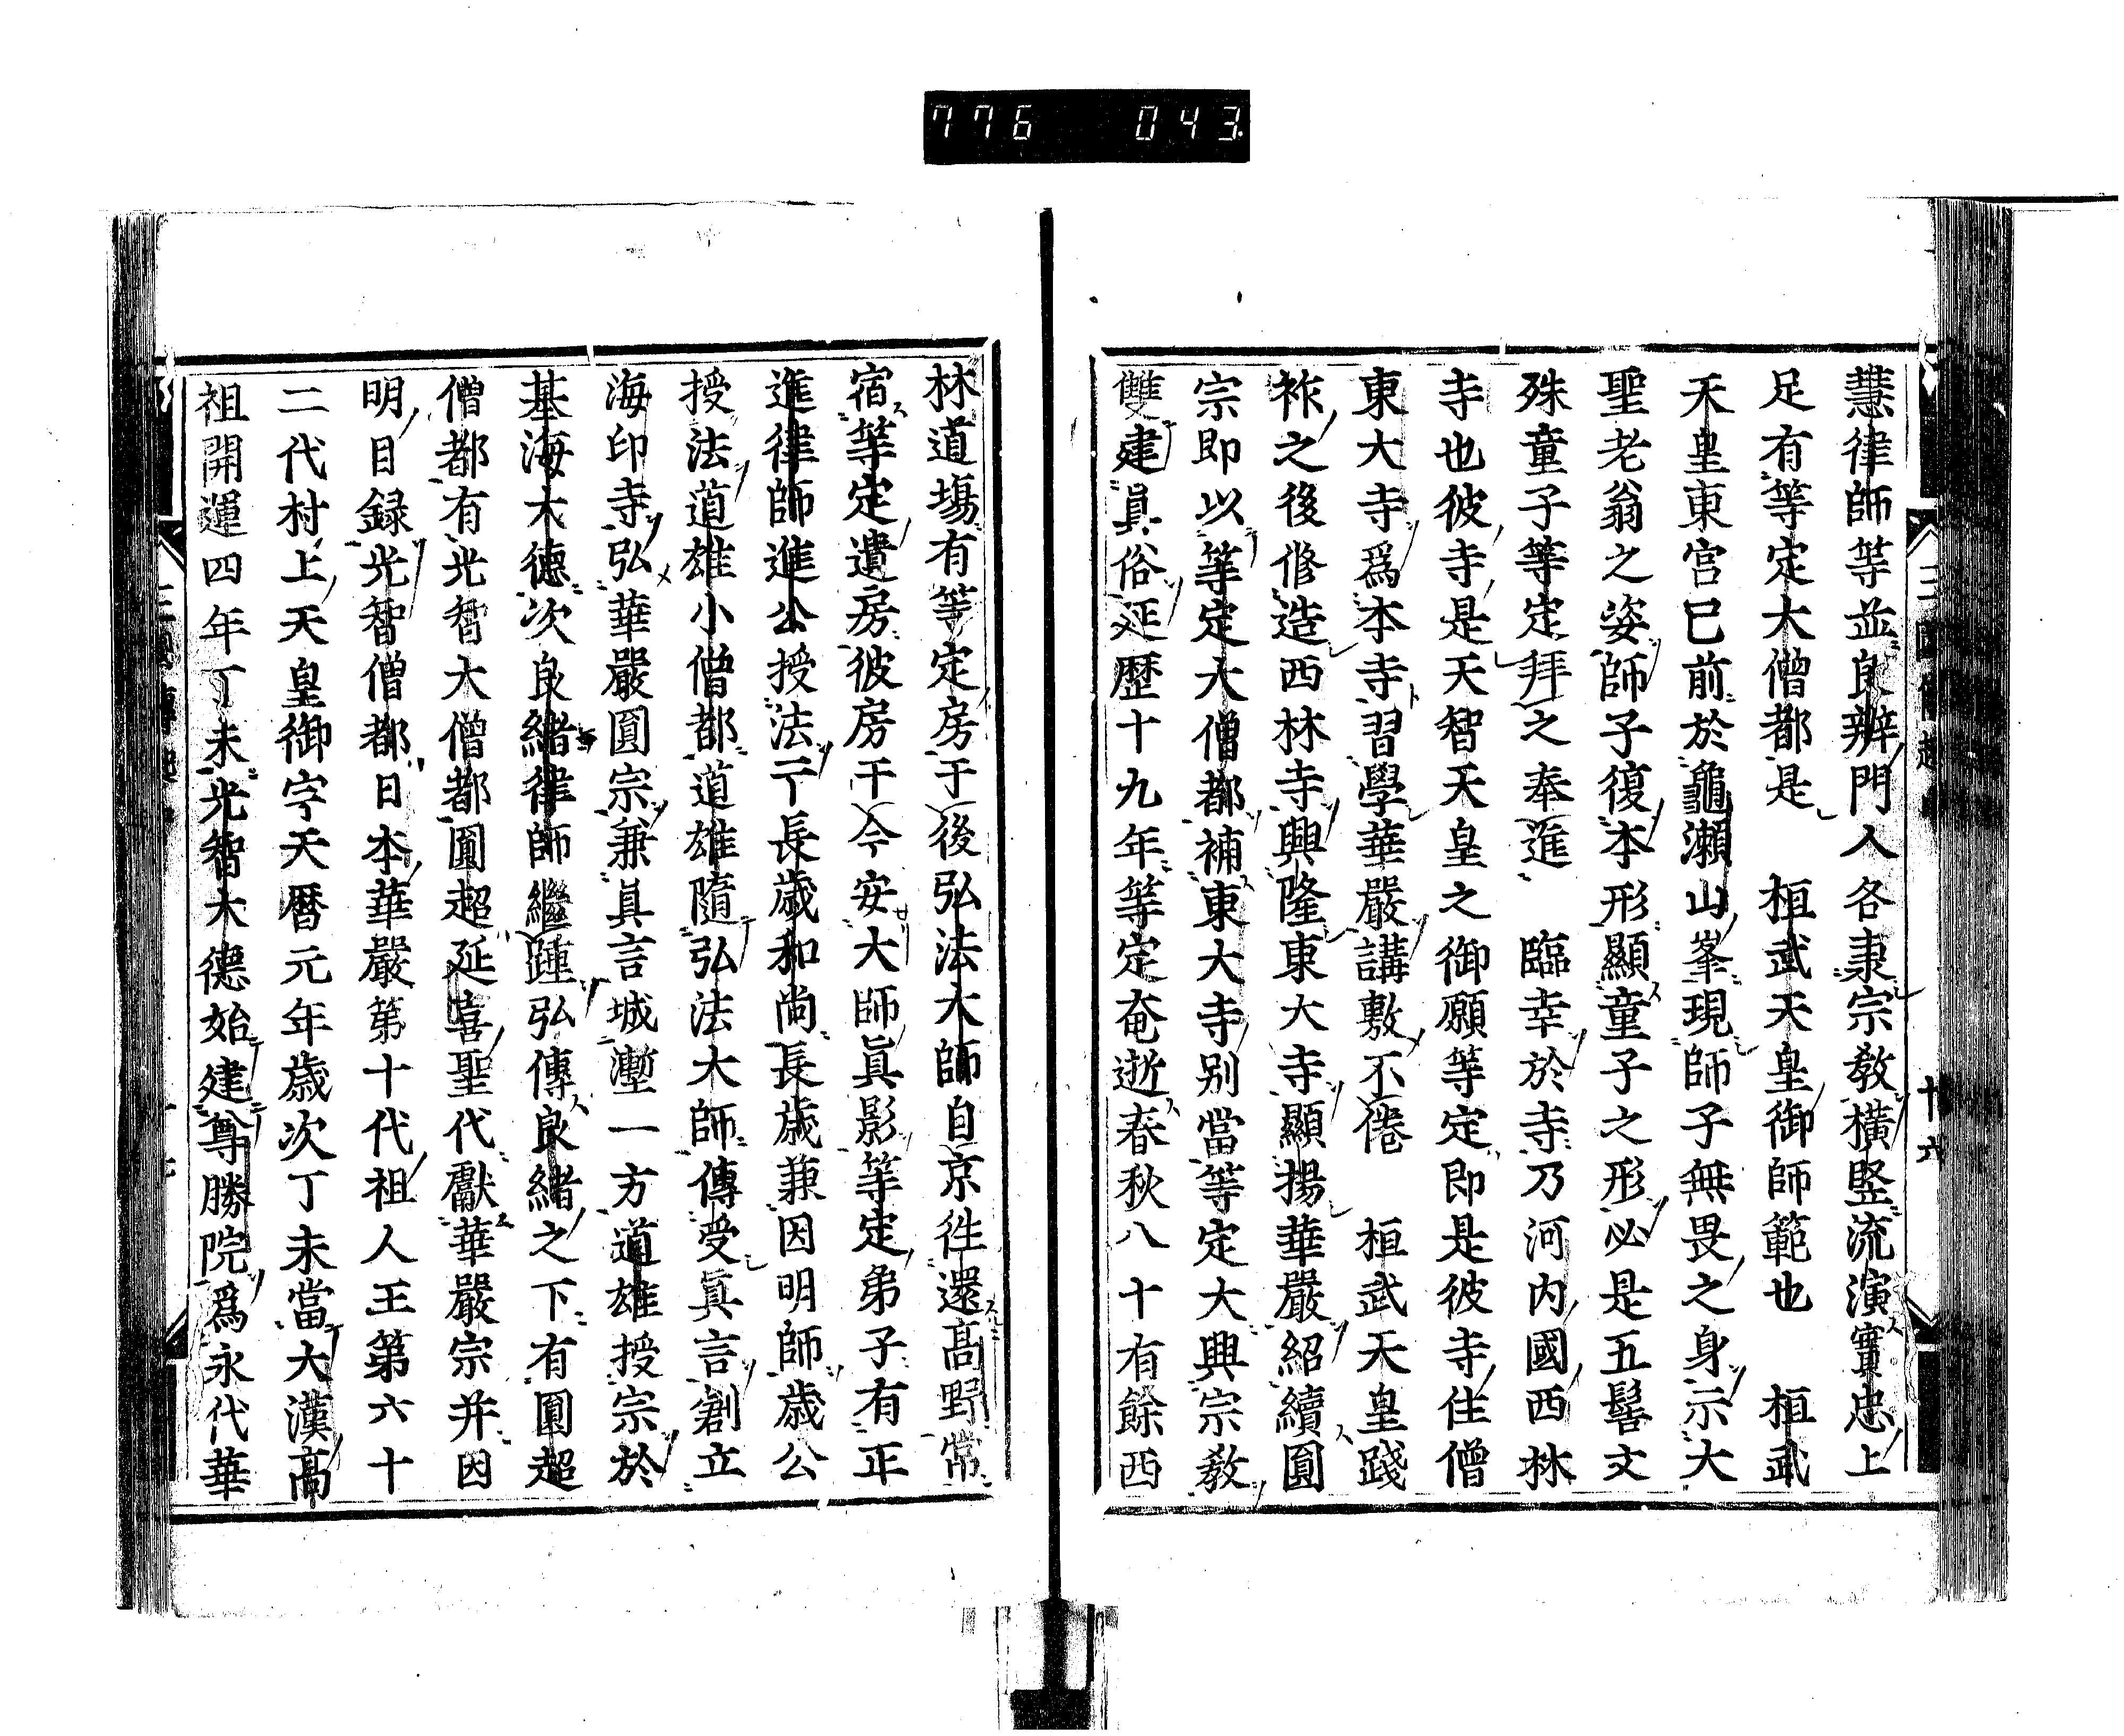 776 043
慧律師等並良辨門人各隶宗教橫竪流演實忠上
足有等定大僧都是　桓武天皇御師範也　桓武
天皇東宮巳前於龜瀬山峯現師子無畏之身示大
聖老翁之姿師子復本形顯童子之形必是五髻文
殊童子等定拜之奉進　臨幸於寺乃河内國西林
寺也彼寺是天智天皇之御願等定即是彼寺住僧
東大寺爲本寺習學華嚴講敷不倦　桓武天皇踐
祚之後修造西林寺興隆東大寺顯揚華嚴紹續圓
宗即以等定大僧都補東大寺别當等定大興宗教
雙建眞俗延歷十九年等定奄逝春秋八十有餘西
林道塲有等定房于後弘法大師自京徃還髙野常
宿等定遺房彼房于今安大師眞影等定弟子有正
進律師進公授法于長歲和尚長歲兼因明師歲公
授法道雄小僧都道雄隨弘法大師傳受眞言創立
海印寺弘華嚴圓宗兼眞言城壍一方道雄授宗於
基海大德次良緒律師繼踵弘傳良緒之下有圓超
僧都有光智大僧都圓超延喜聖代獻華嚴宗并因
明目録光智僧都日本華嚴第十代祖人王第六十
二代村上天皇御字天暦元年歲次丁未當大漢高
祖開運四年丁未光智大德始建尊勝院爲永代華
十六